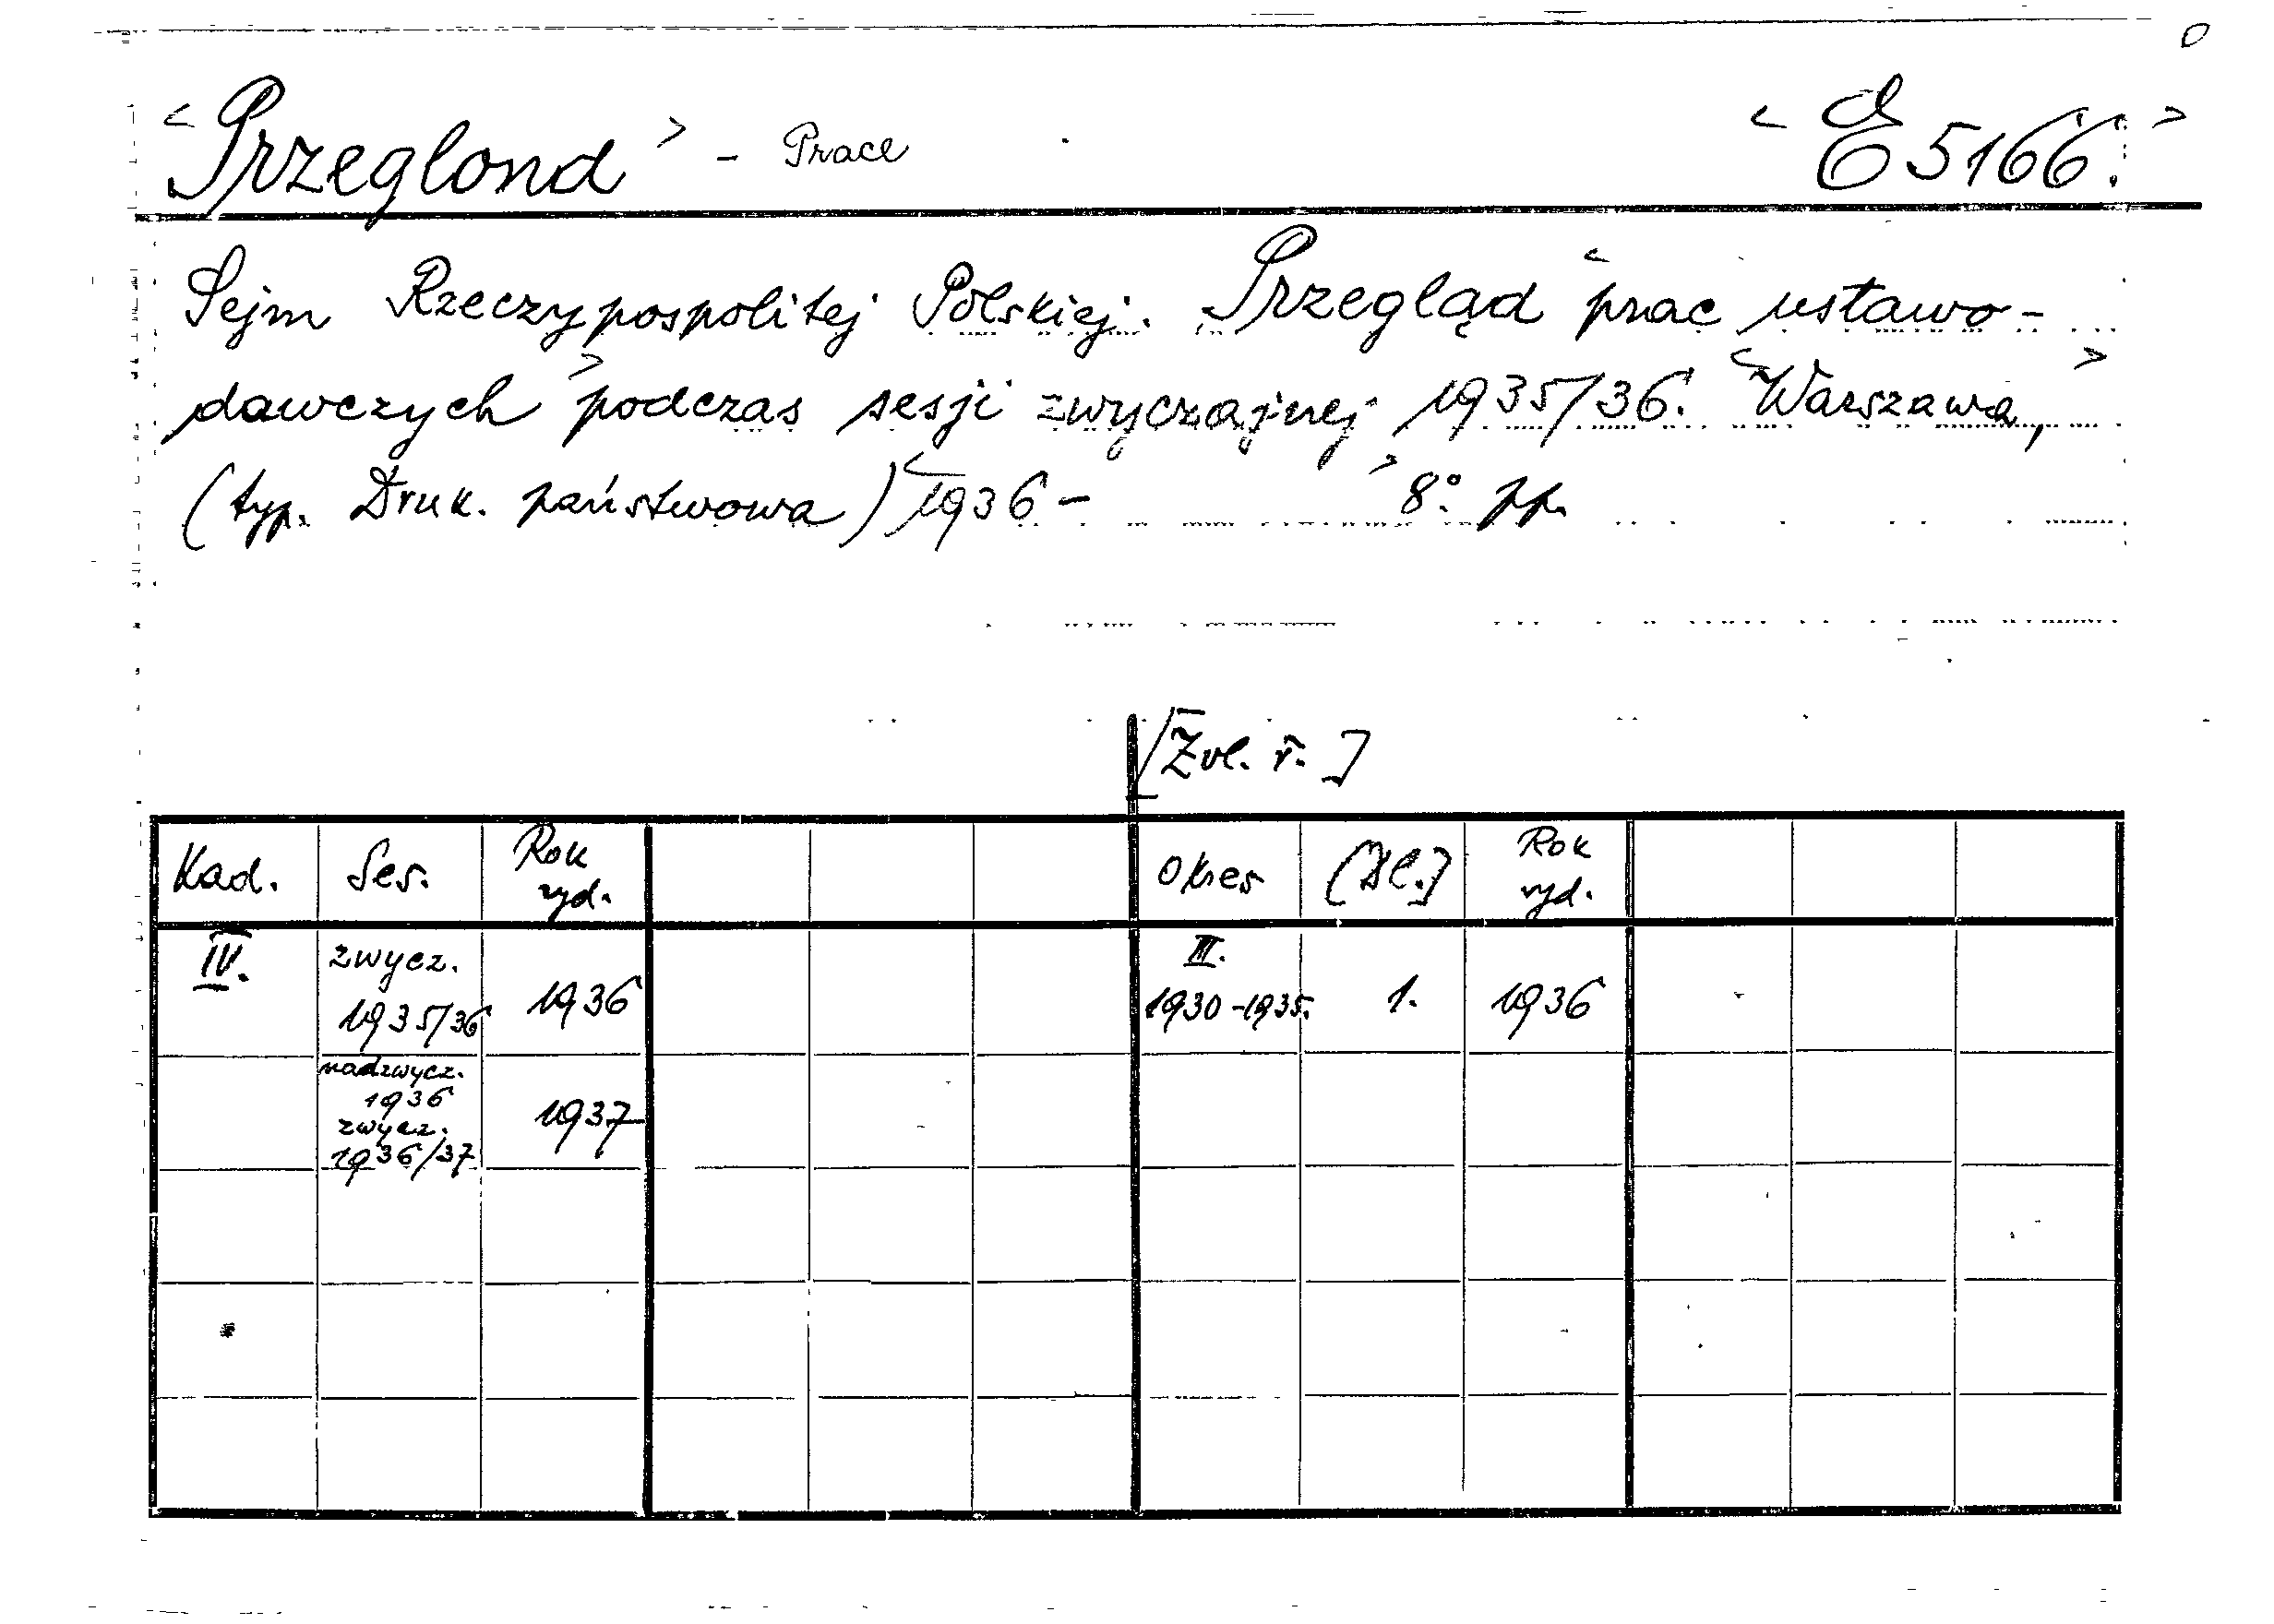 < Przeglond > - Prace < E 5166. >
Sejm Rzeczypospolitej Polskiej. Przegląd < prac ustawo-
dawczych > podczas sesji zwyczajnej 1935/36. < Warszawa, >
(typ. Druk. państwowa) < 1936 - > 8° pp.
[Zvl. ř.]
Kad. Ses. Rok wyd. Okres [Dl.] Rok wyd.
IV. zwycz. 1935/36 1936 III. 1930-1935. 1. 1936
nadzwycz. 1936 zwycz. 1936/37 1937